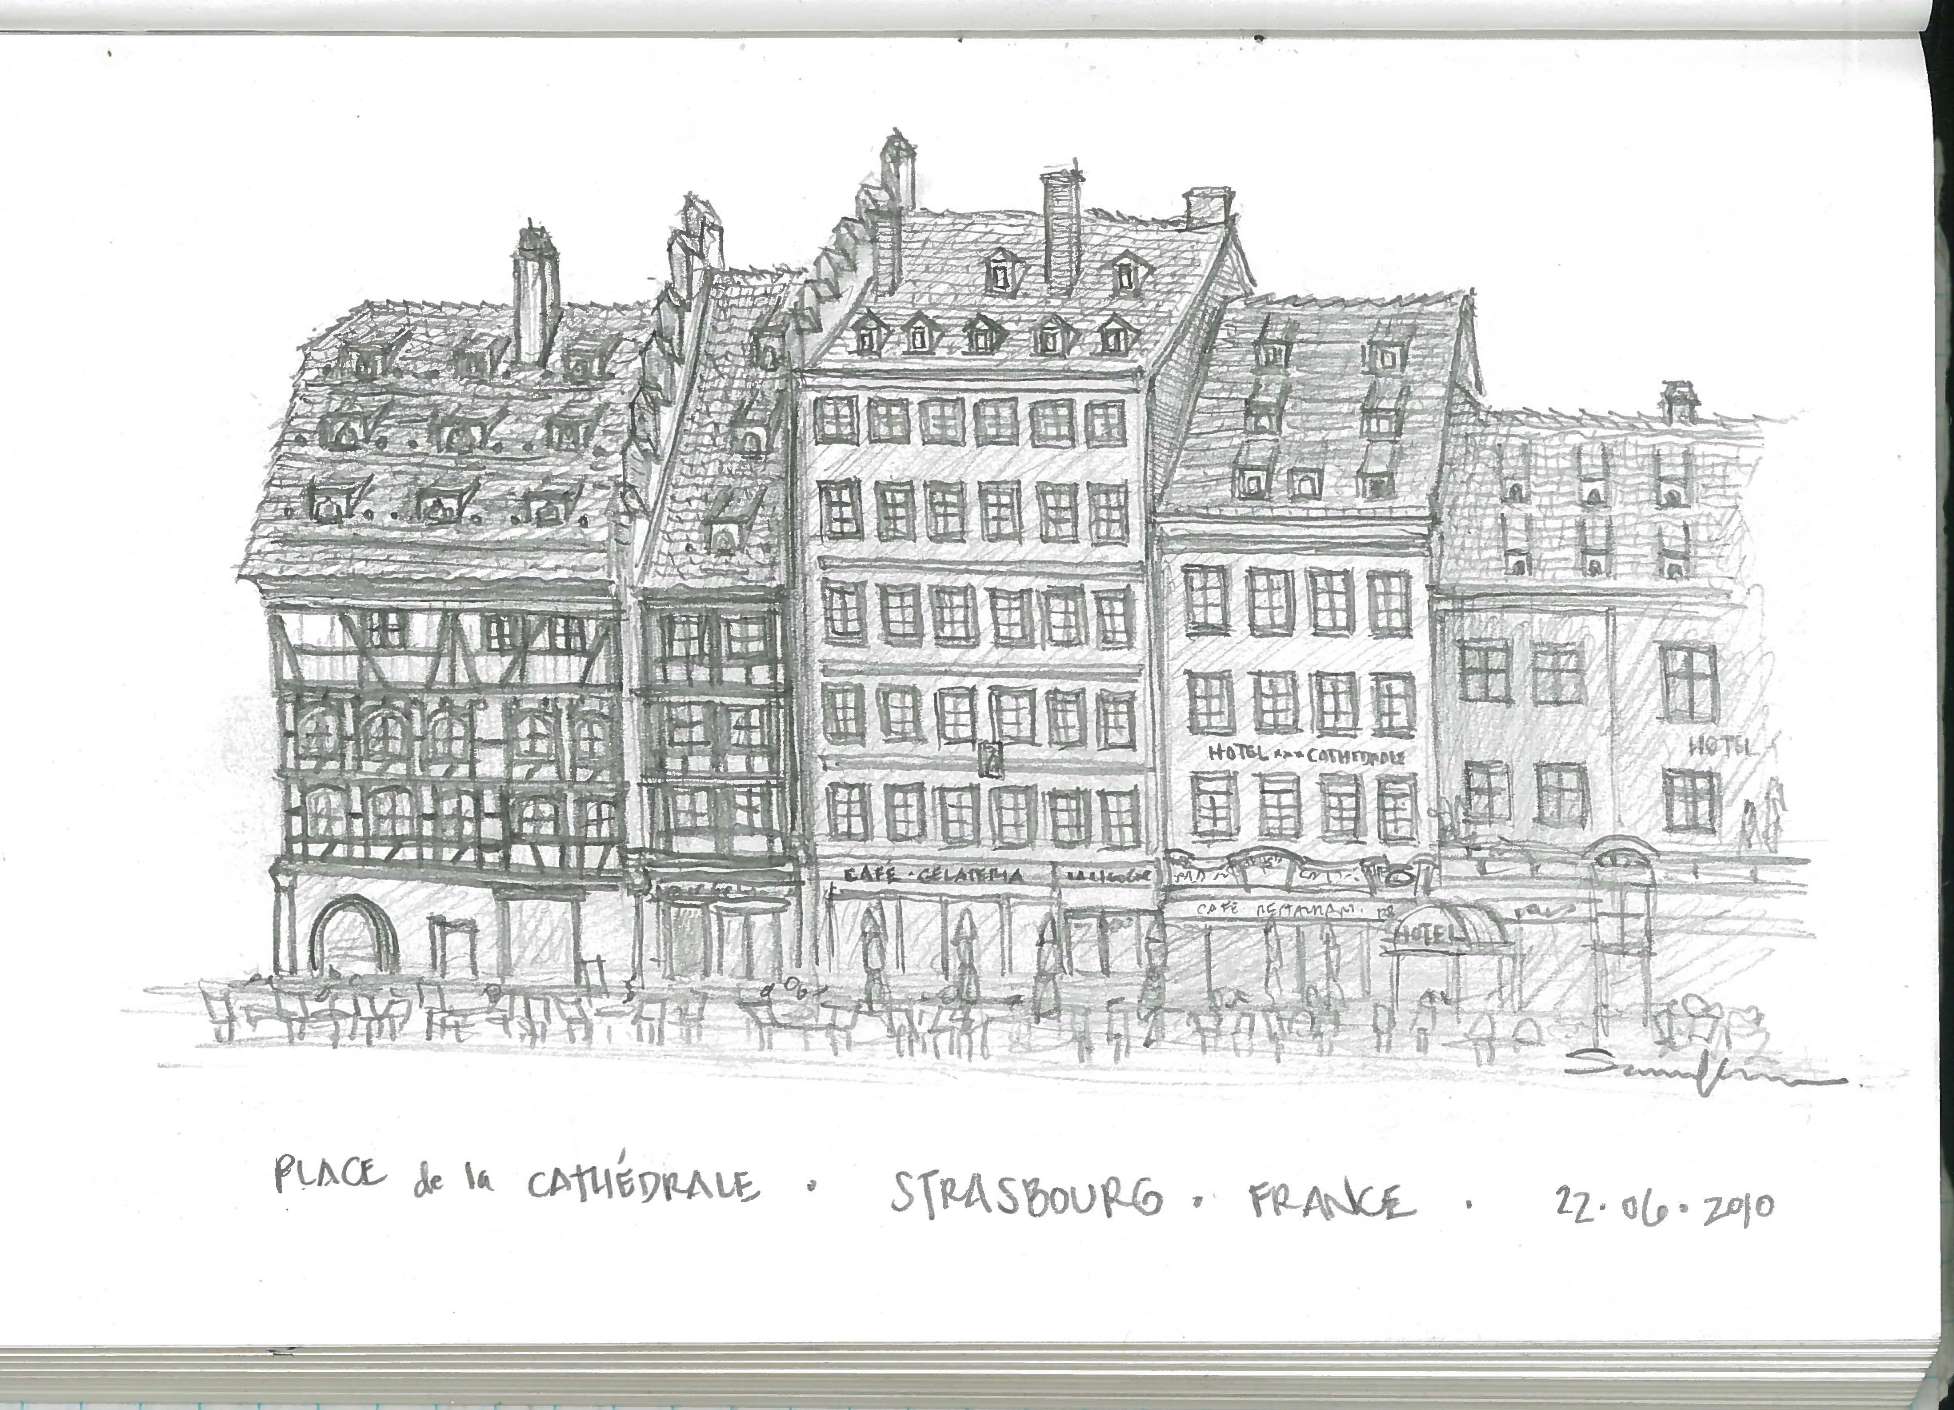 HOTEL *** CATHEDRALE
HOTEL
CAFÉ · GELATERIA
CAFÉ RESTAURANT
HOTEL
PLACE de la CATHÉDRALE · STRASBOURG · FRANCE · 22·06·2010